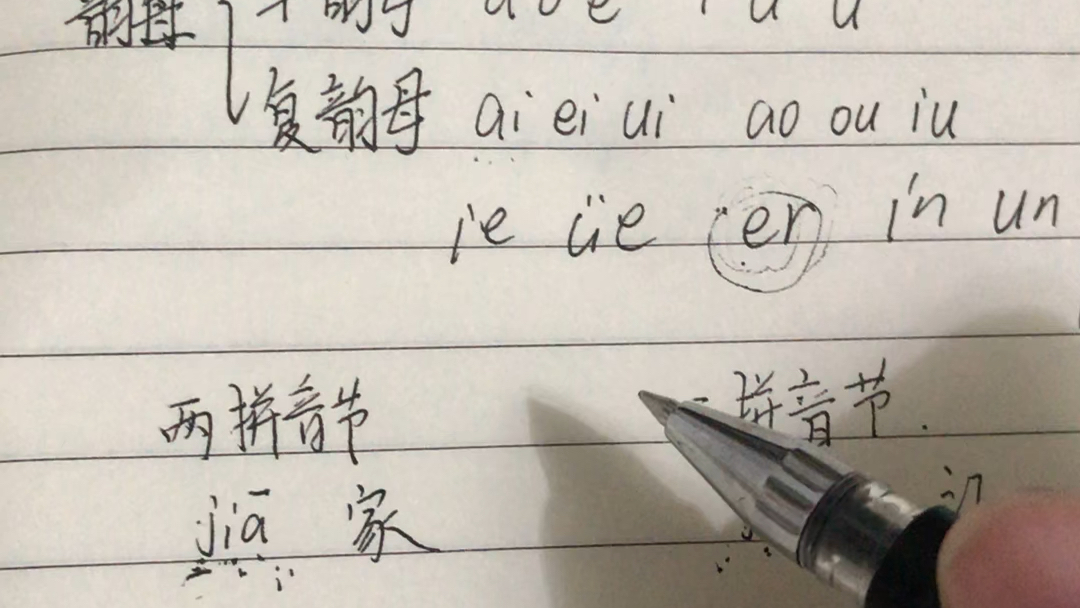 韵母 单韵母 a o e i u ü
复韵母 ai ei ui ao ou iu
ie üe er in un
两拼音节 拼音节
jiā 家